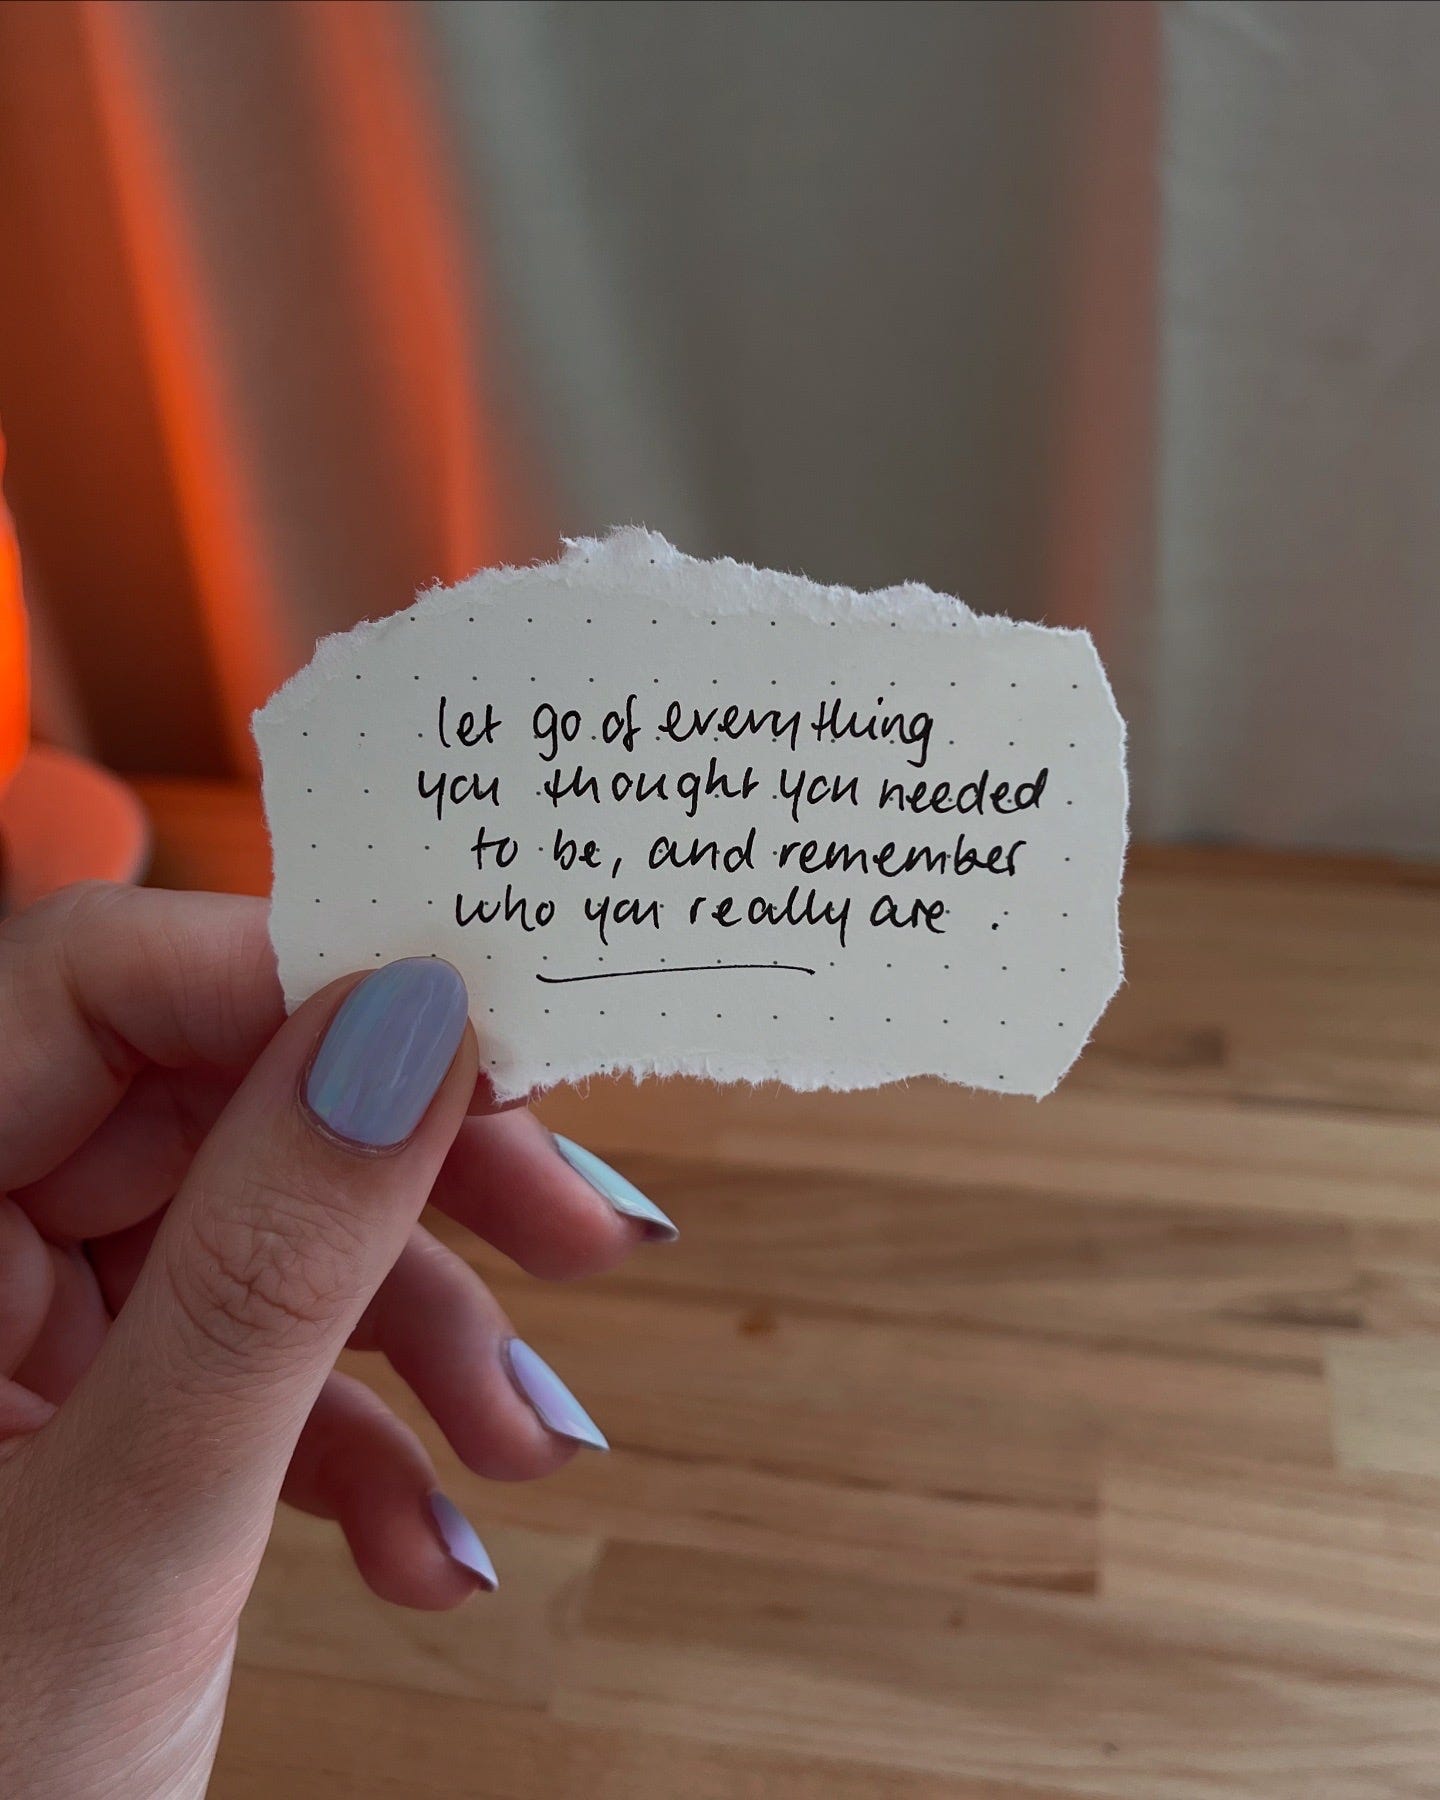 let go of everything
you thought you needed
to be, and remember
who you really are.